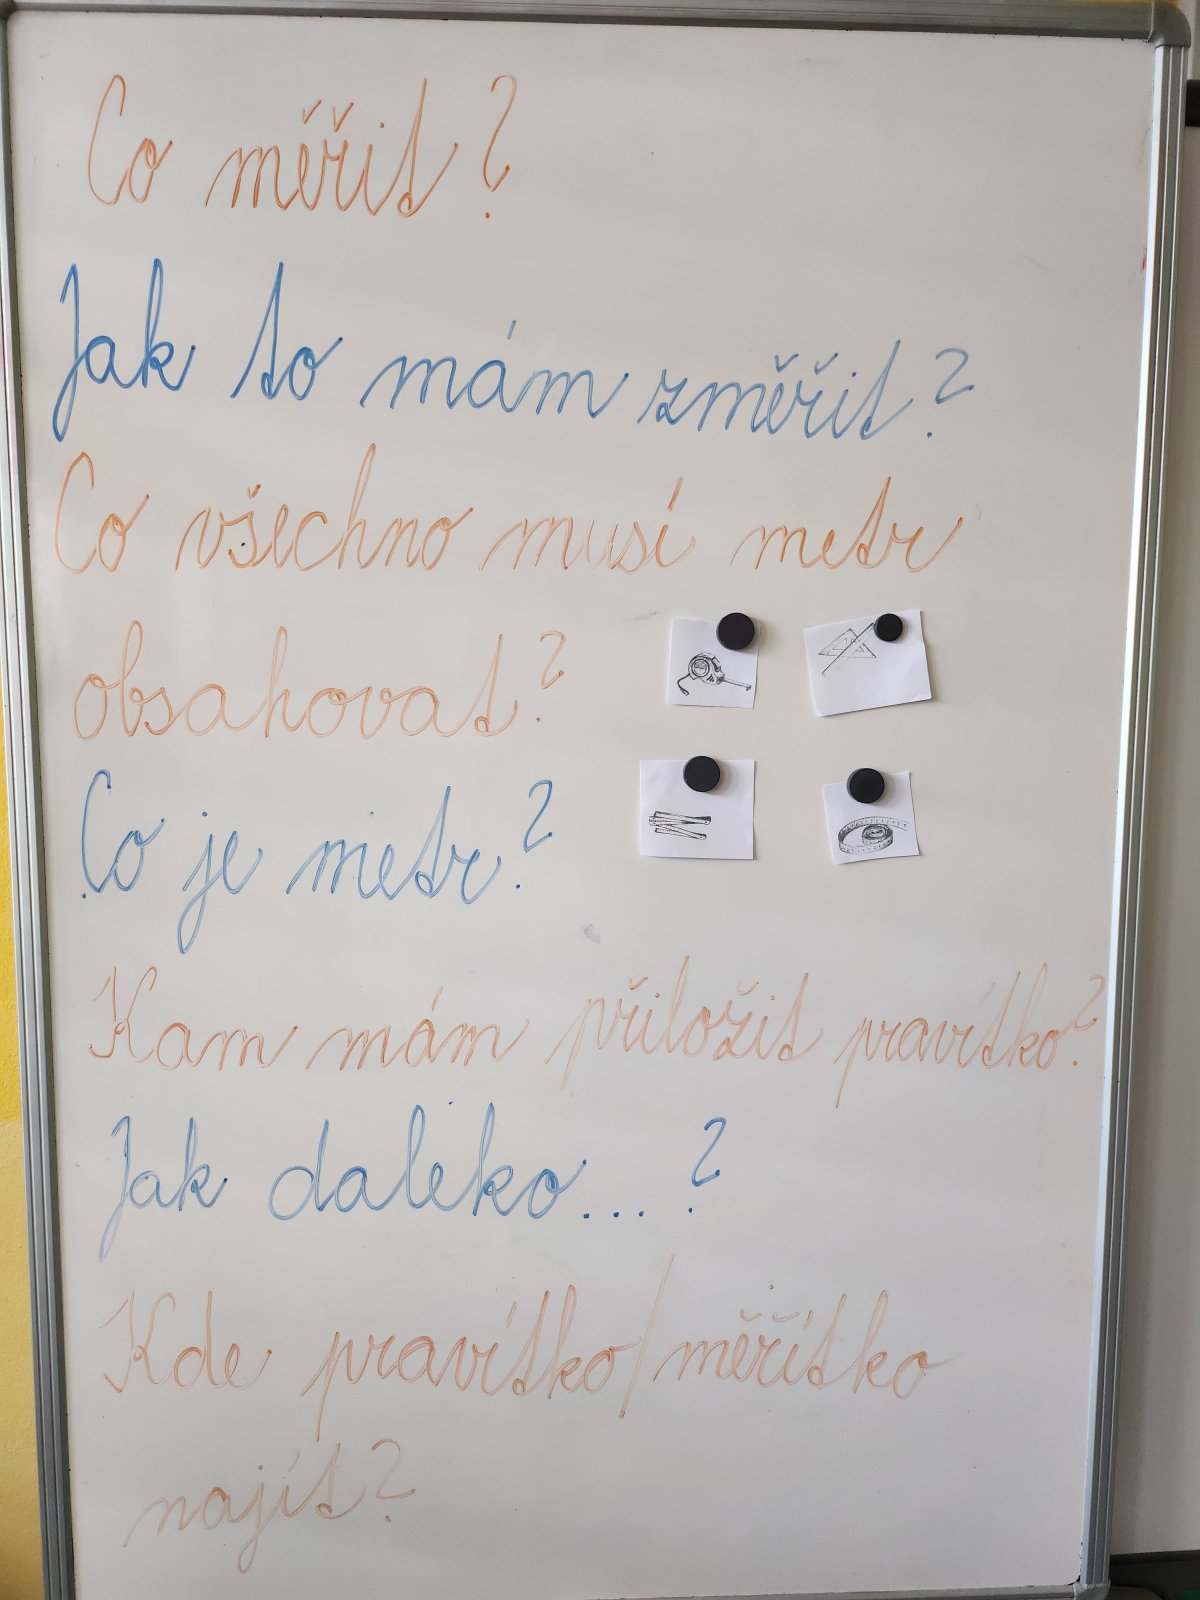 Co měřit?
Jak to mám změřit?
Co všechno musí metr
obsahovat?
Co je metr?
Kam mám přiložit pravítko?
Jak daleko...?
Kde pravítko/měřítko
najít?